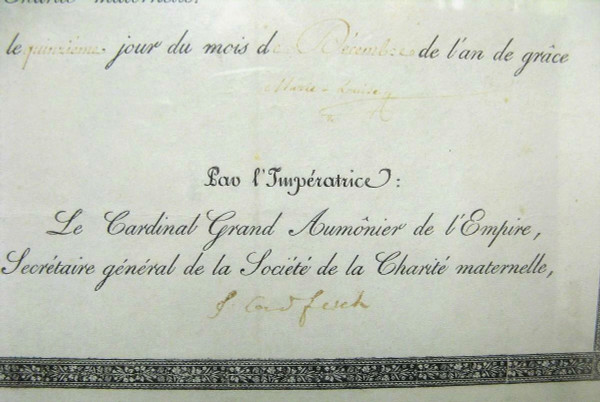 Charité maternelle.
le quinzième jour du mois de Décembre de l'an de grâce
Marie-Louise
Par l'Impératrice:
Le Cardinal Grand Aumônier de l'Empire,
Secrétaire général de la Société de la Charité maternelle,
J. Card fesch